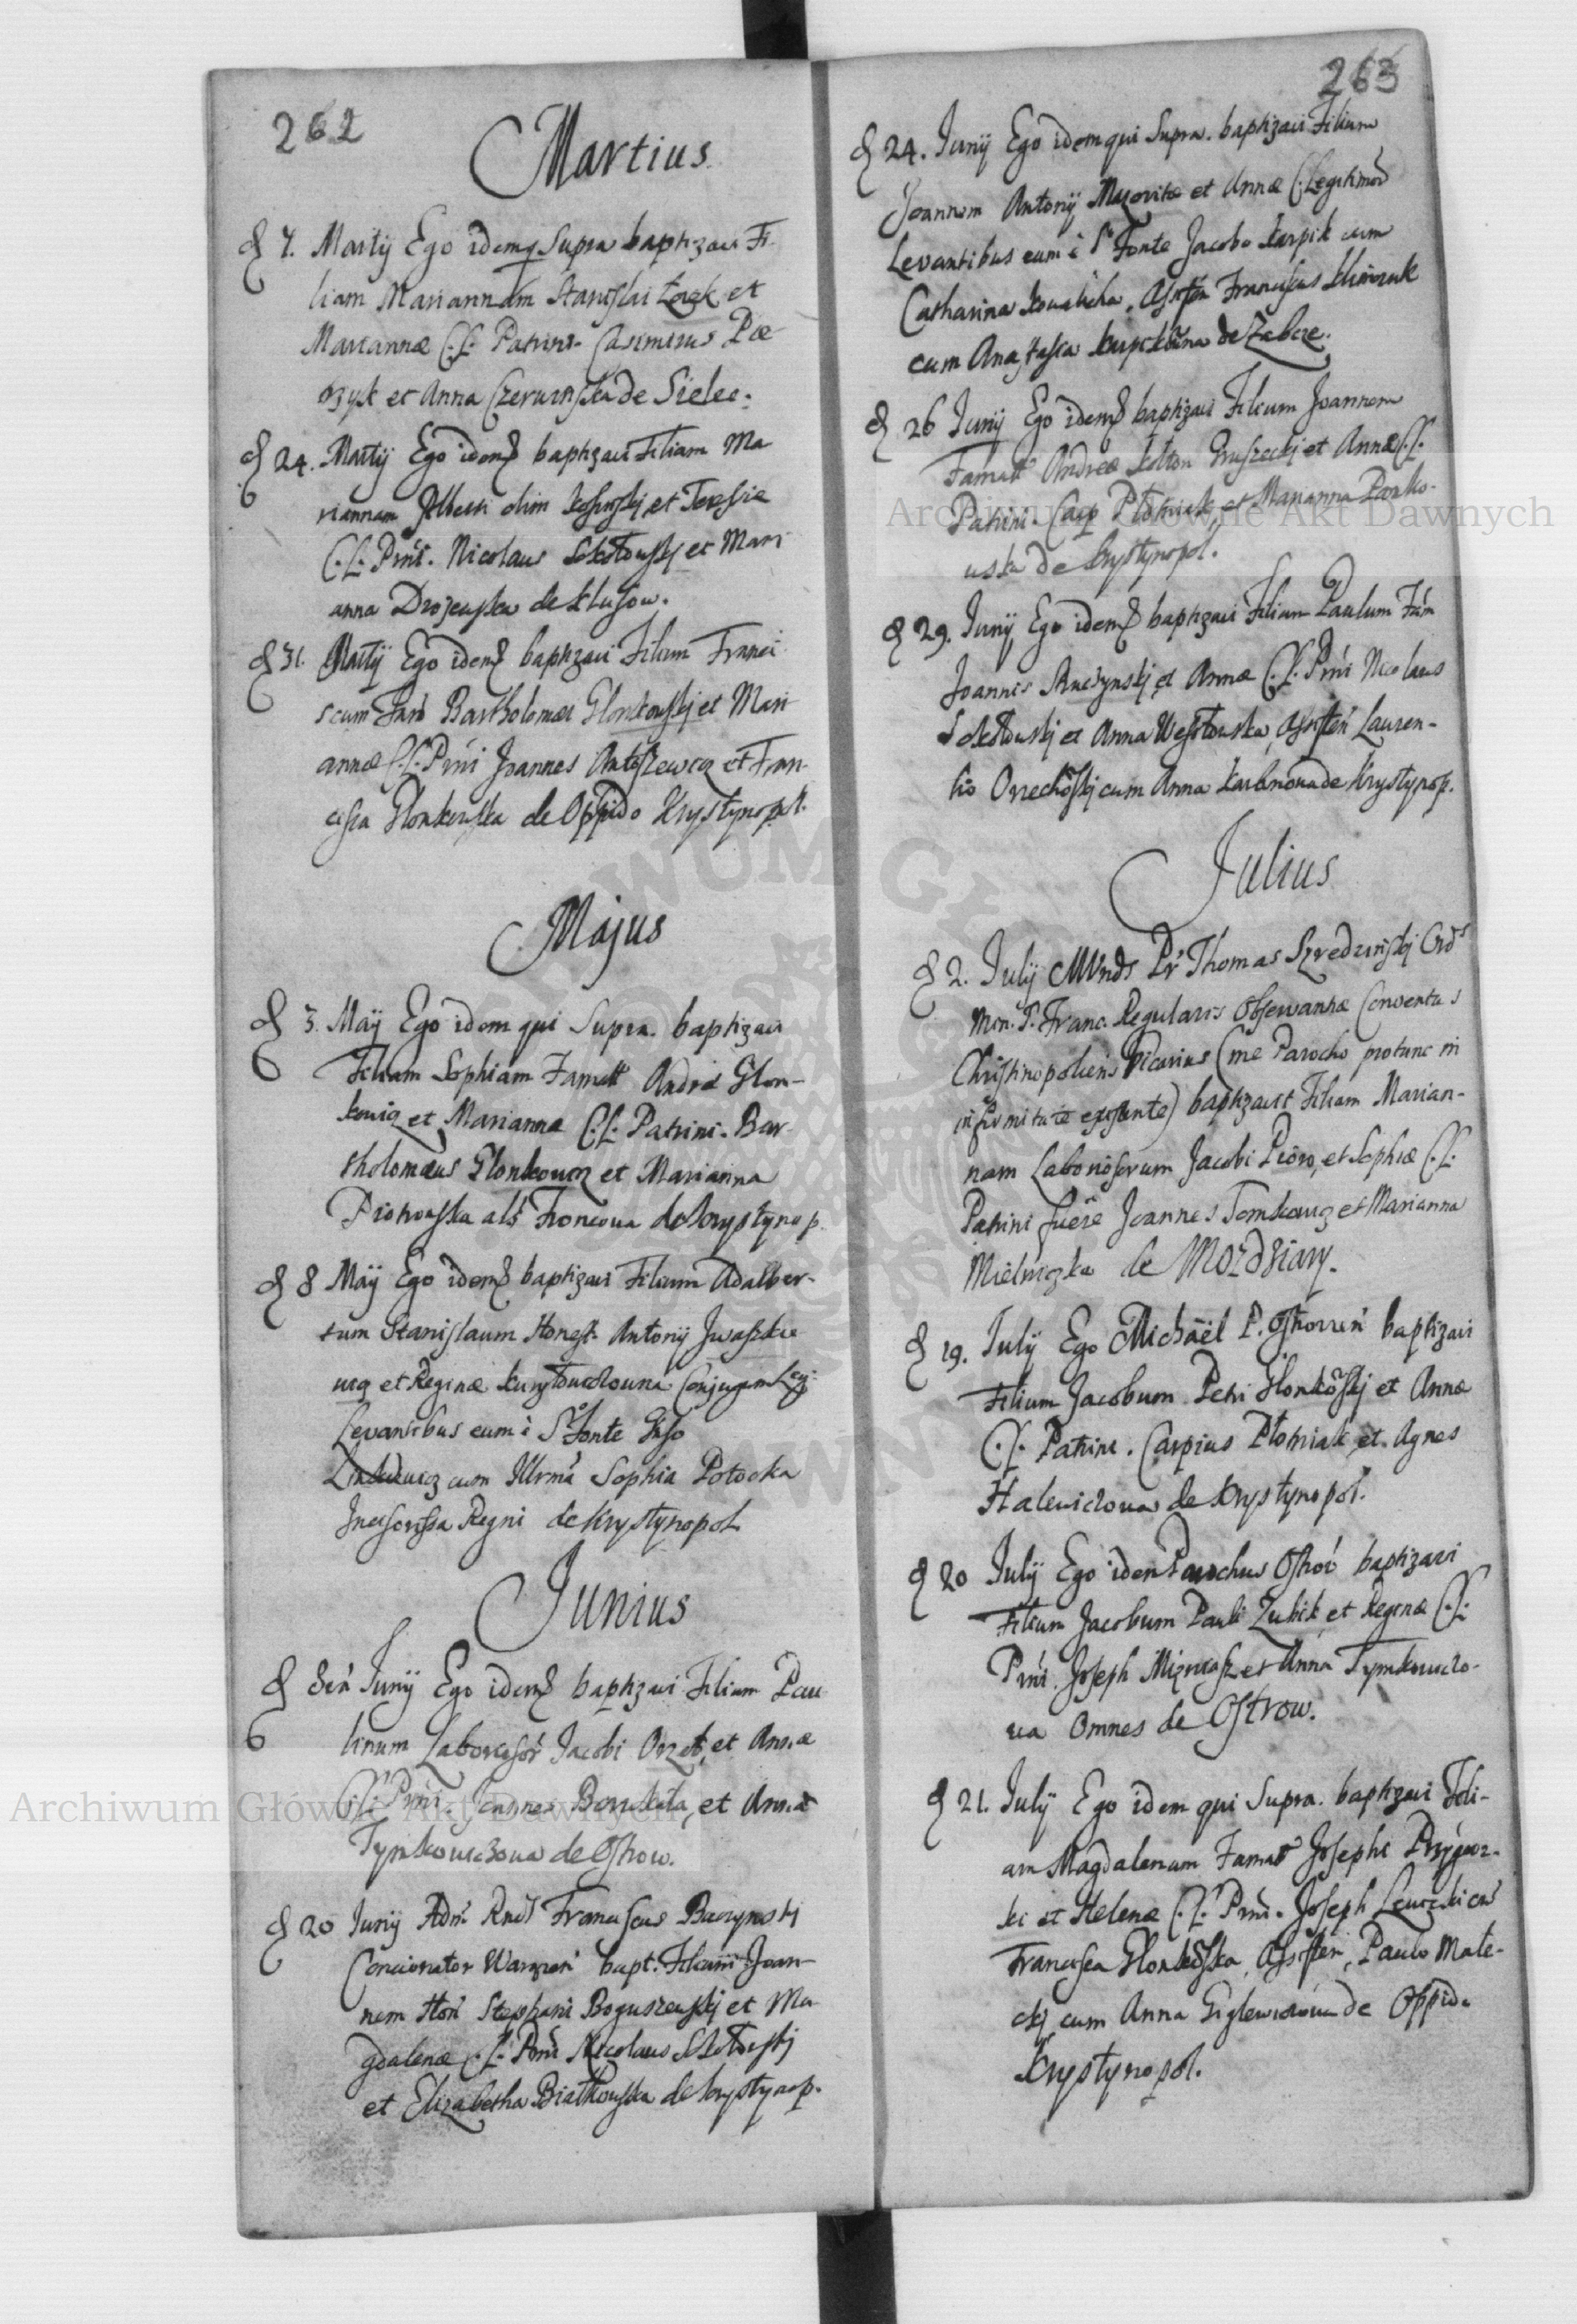 262
Martius
7. Martij Ego idemq Supra baptizavi Fi-
liam Mariannam Stanislai et
Mariannæ C.L. Patrini. Casimirus Pie
et Anna Czerwinska de Sielec.
24. Martij Ego idem baptizavi Filiam Ma
riannam olim et Teresiæ
C.L. Prni. Nicolaus Sokołowskj et Mari
anna Drozewska de Klusow.
31. Martij Ego idem baptizavi Filium Franci
scum Bartholomæi Glonkowskj et Mari
annæ C.L. Prni Joannes Antoszewicz et Fran-
cisca Glonkowska de Oppido Krystynopol.
Majus
3. Maij Ego idem qui Supra. baptizavi
Filiam Sophiam Famatt Andreæ Glon-
kowicz et Mariannæ C.L. Patrini. Bar-
tholomæus Glonkowicz et Marianna
Piotrowska als de Krystynop.
8 Maij Ego idem baptizavi Filium Adalber-
tum Stanislaum Honest. Antonij Iwaszkie
wicz et Reginæ Conjugum Leg:
Levantibus eum è S. Fonte
cum Illrma Sophia Potocka
Regni de Krystynopol
Junius
Junij Ego idem baptizavi Filium Pau
linum Laborios Jacobi et Annæ
C.L. Prni. Joannes et Anna
Tymkowiczowa de Ostrow.
20 Junij Adm Rnds Franciscus Baczynskj
Concionator bapt. Filium Joan-
nem Hon Stephani Boguszewskj et Ma
gdalenæ C.L. Prni Nicolaus Sokołowskj
et Elizabetha Białkowska de Krystynop.
263
24. Junij Ego idem qui Supra. baptizavi Filium
Joannem Antonij Mazovitæ et Annæ C. Legitimor
Levantibus eum è S. Fonte Jacobo Karpik cum
Catharina Kowalicha. Assisten Franciscus
cum Anastasia de Zabcze.
26 Junij Ego idem baptizavi Filium Joannem
Famatt Andreæ Kołton Gruszeckj et Annæ C.L.
Patrini. Casp Płotniak et Marianna Pawko-
wska de Krystynopol.
29. Junij Ego idem baptizavi Filium Paulum Fam
Joannis et Annæ C.L. Prni Nicolaus
Sokołowskj et Anna Wesołowska, Assisten Lauren-
tio Orzechoskj cum Anna de Krystynop.
Julius
2. Julij Pr Thomas Szredzinskj Ords
Min. S. Franc. Regularis Observantiæ Conventus
Christinopoliens Vicarius (me Parocho protunc in
infirmitate existente) baptizavit Filiam Marian-
nam Laboriosorum Jacobi Pioro, et Sophiæ C.L.
Patrini fuere Joannes Tomkowicz et Marianna
Mielniczka de Mozdziary.
19. Julij Ego Michaël P. Ostovien baptizavi
Filium Jacobum Petri Glonkoskj et Annæ
C.L. Patrini. Carpius Płotniak et Agnes
Halewiczowa de Krystynopol.
20 Julij Ego idem Parochus Ostov baptizavi
Filium Jacobum Pauli Zubik et Reginæ C.L.
Prni. Joseph et Anna Tymkowiczo-
wa Omnes de Ostrow.
21. Julij Ego idem qui Supra. baptizavi Fili-
am Magdalenam Famat Josephi
ki et Helenæ C.L. Prni. Joseph Lewicki cum
Francisca Glonkoska, Assisten, Paulo Male-
ckj cum Anna de Oppido
Krystynopol.
Archiwum Główne Akt Dawnych
Archiwum Główne Akt Dawnych